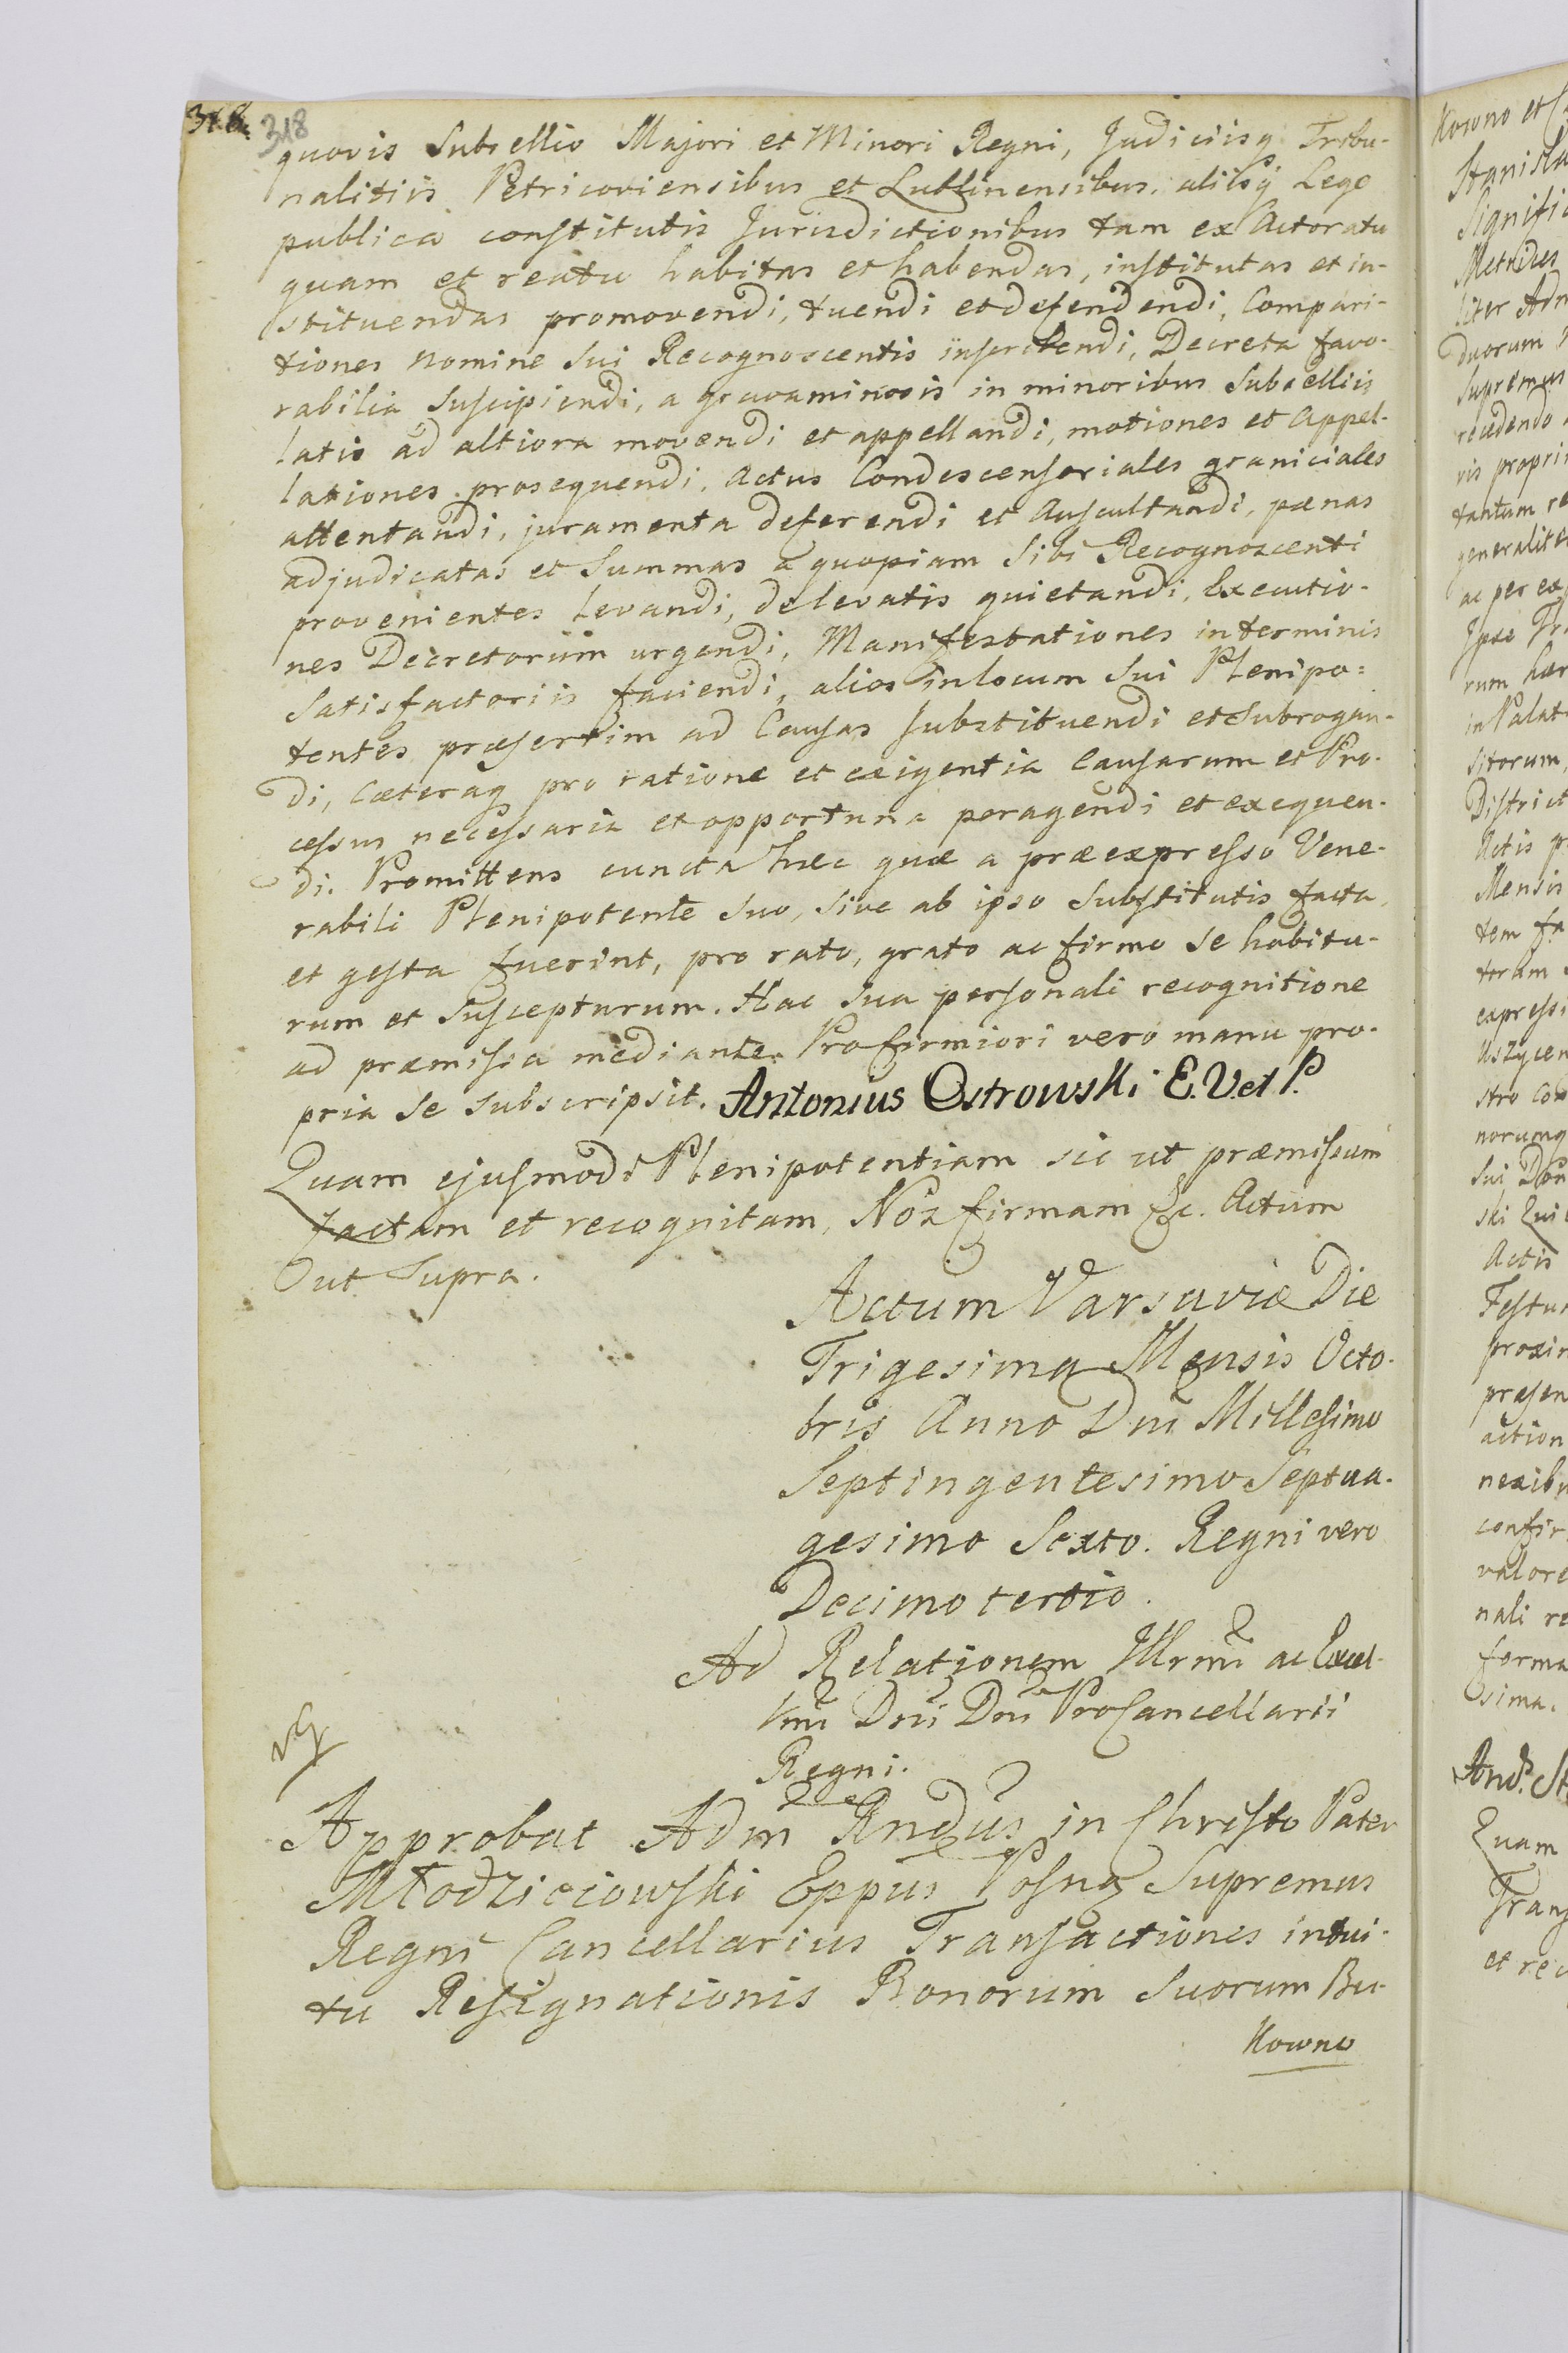 318. 318
quovis Subsellio Majori et Minori Regni, Judiciisq Tribu-
nalitiis Petricoviensibus et Lublinensibus, aliisq Lege
publica constitutis Jurisdictionibus tam ex Actoratu
quam et reatu habitas et habendas, institutas et in-
stituendas promovendi, tuendi et defendendi, Compari-
tiones nomine Sui Recognoscentis inscribendi, Decreta favo-
rabilia Suscipiendi, a gravaminosis in minoribus Subselliis
latis ad altiora movendi et appellandi, motiones et Appel-
lationes prosequendi, Actus Condescensoriales graniciales
attentandi, juramenta deferendi et Auscultandi, pænas
adjudicatas et Summas a quopiam Sibi Recognoscenti
provenientes levandi, de levatis quietandi, Executio-
nes Decretorum urgendi, Manifestationes in terminis
Satisfactoriis faciendi, alios in locum Sui Plenipo=
tentes præsertim ad Causas substituendi et Subrogan-
di, Cæteraq pro ratione et exigentia Causarum et Pro-
cessus necessaria et opportuna peragendi et exequen-
di. Promittens cuncta hæc quæ a præexpresso Vene-
rabili Plenipotente Suo, sive ab ipso Substitutis facta,
et gesta fuerint, pro rato, grato ac firmo Se habitu-
rum et Suscepturum. Hac Sua personali recognitione
ad præmissa mediante. Pro firmiori vero manu pro-
pria Se Subscripsit. Antonius Ostrowski E. V. et P.
Quam ejusmodi Plenipotentiam sic ut præmissum
factam et recognitam, Nos firmam &c. Actum
ut Supra.
Actum Varsaviæ Die
Trigesima Mensis Octo-
bris Anno Dni Millesimo
Septingentesimo Septua-
gesimo Sexto. Regni vero
Decimo tertio.
Ad Relationem Illrmi ac Excel-
lmi Dni Dni ProCancellarii
Regni.
Approbat Adm Rndus in Christo Pater
Młodzieiowski Eppus Posn Supremus
Regni Cancellarius Transactiones intui-
tu Resignationis Bonorum Suorum Bu-
kowno
kowno et
Stanisla
Signific
Metrices
liter Adm
duorum
Supremus
recedendo
vis propri
tantum re
generalite
ac per ex
Ipse
rum hær
in Palat
sitorum,
District
Actis
Mensis
tem fa
toram
express
uszycen
stro
norumq
Sui
ski Qui
Actis
Festu
proxim
præsen
action
nexib
confir
valore
nali re
forma
sima.
And. St
Quam
Trans
et rec